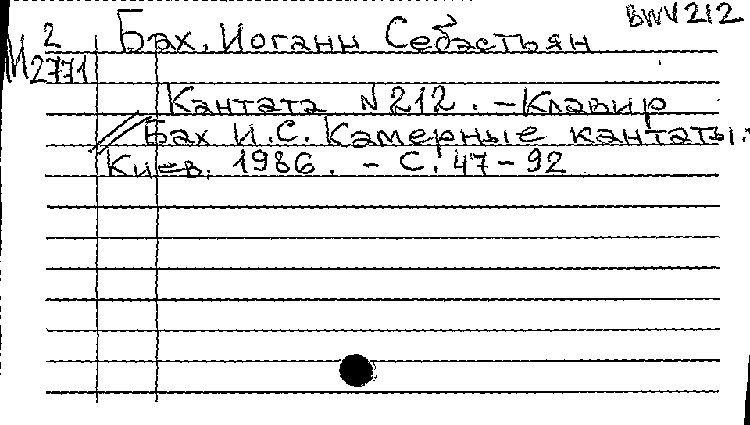 BWV 212
2 Бах, Иоганн Себастьян
М2771
Кантата N 212. - Клавир
// Бах И.С. Камерные кантаты.-
Киев. 1986. - С. 47-92